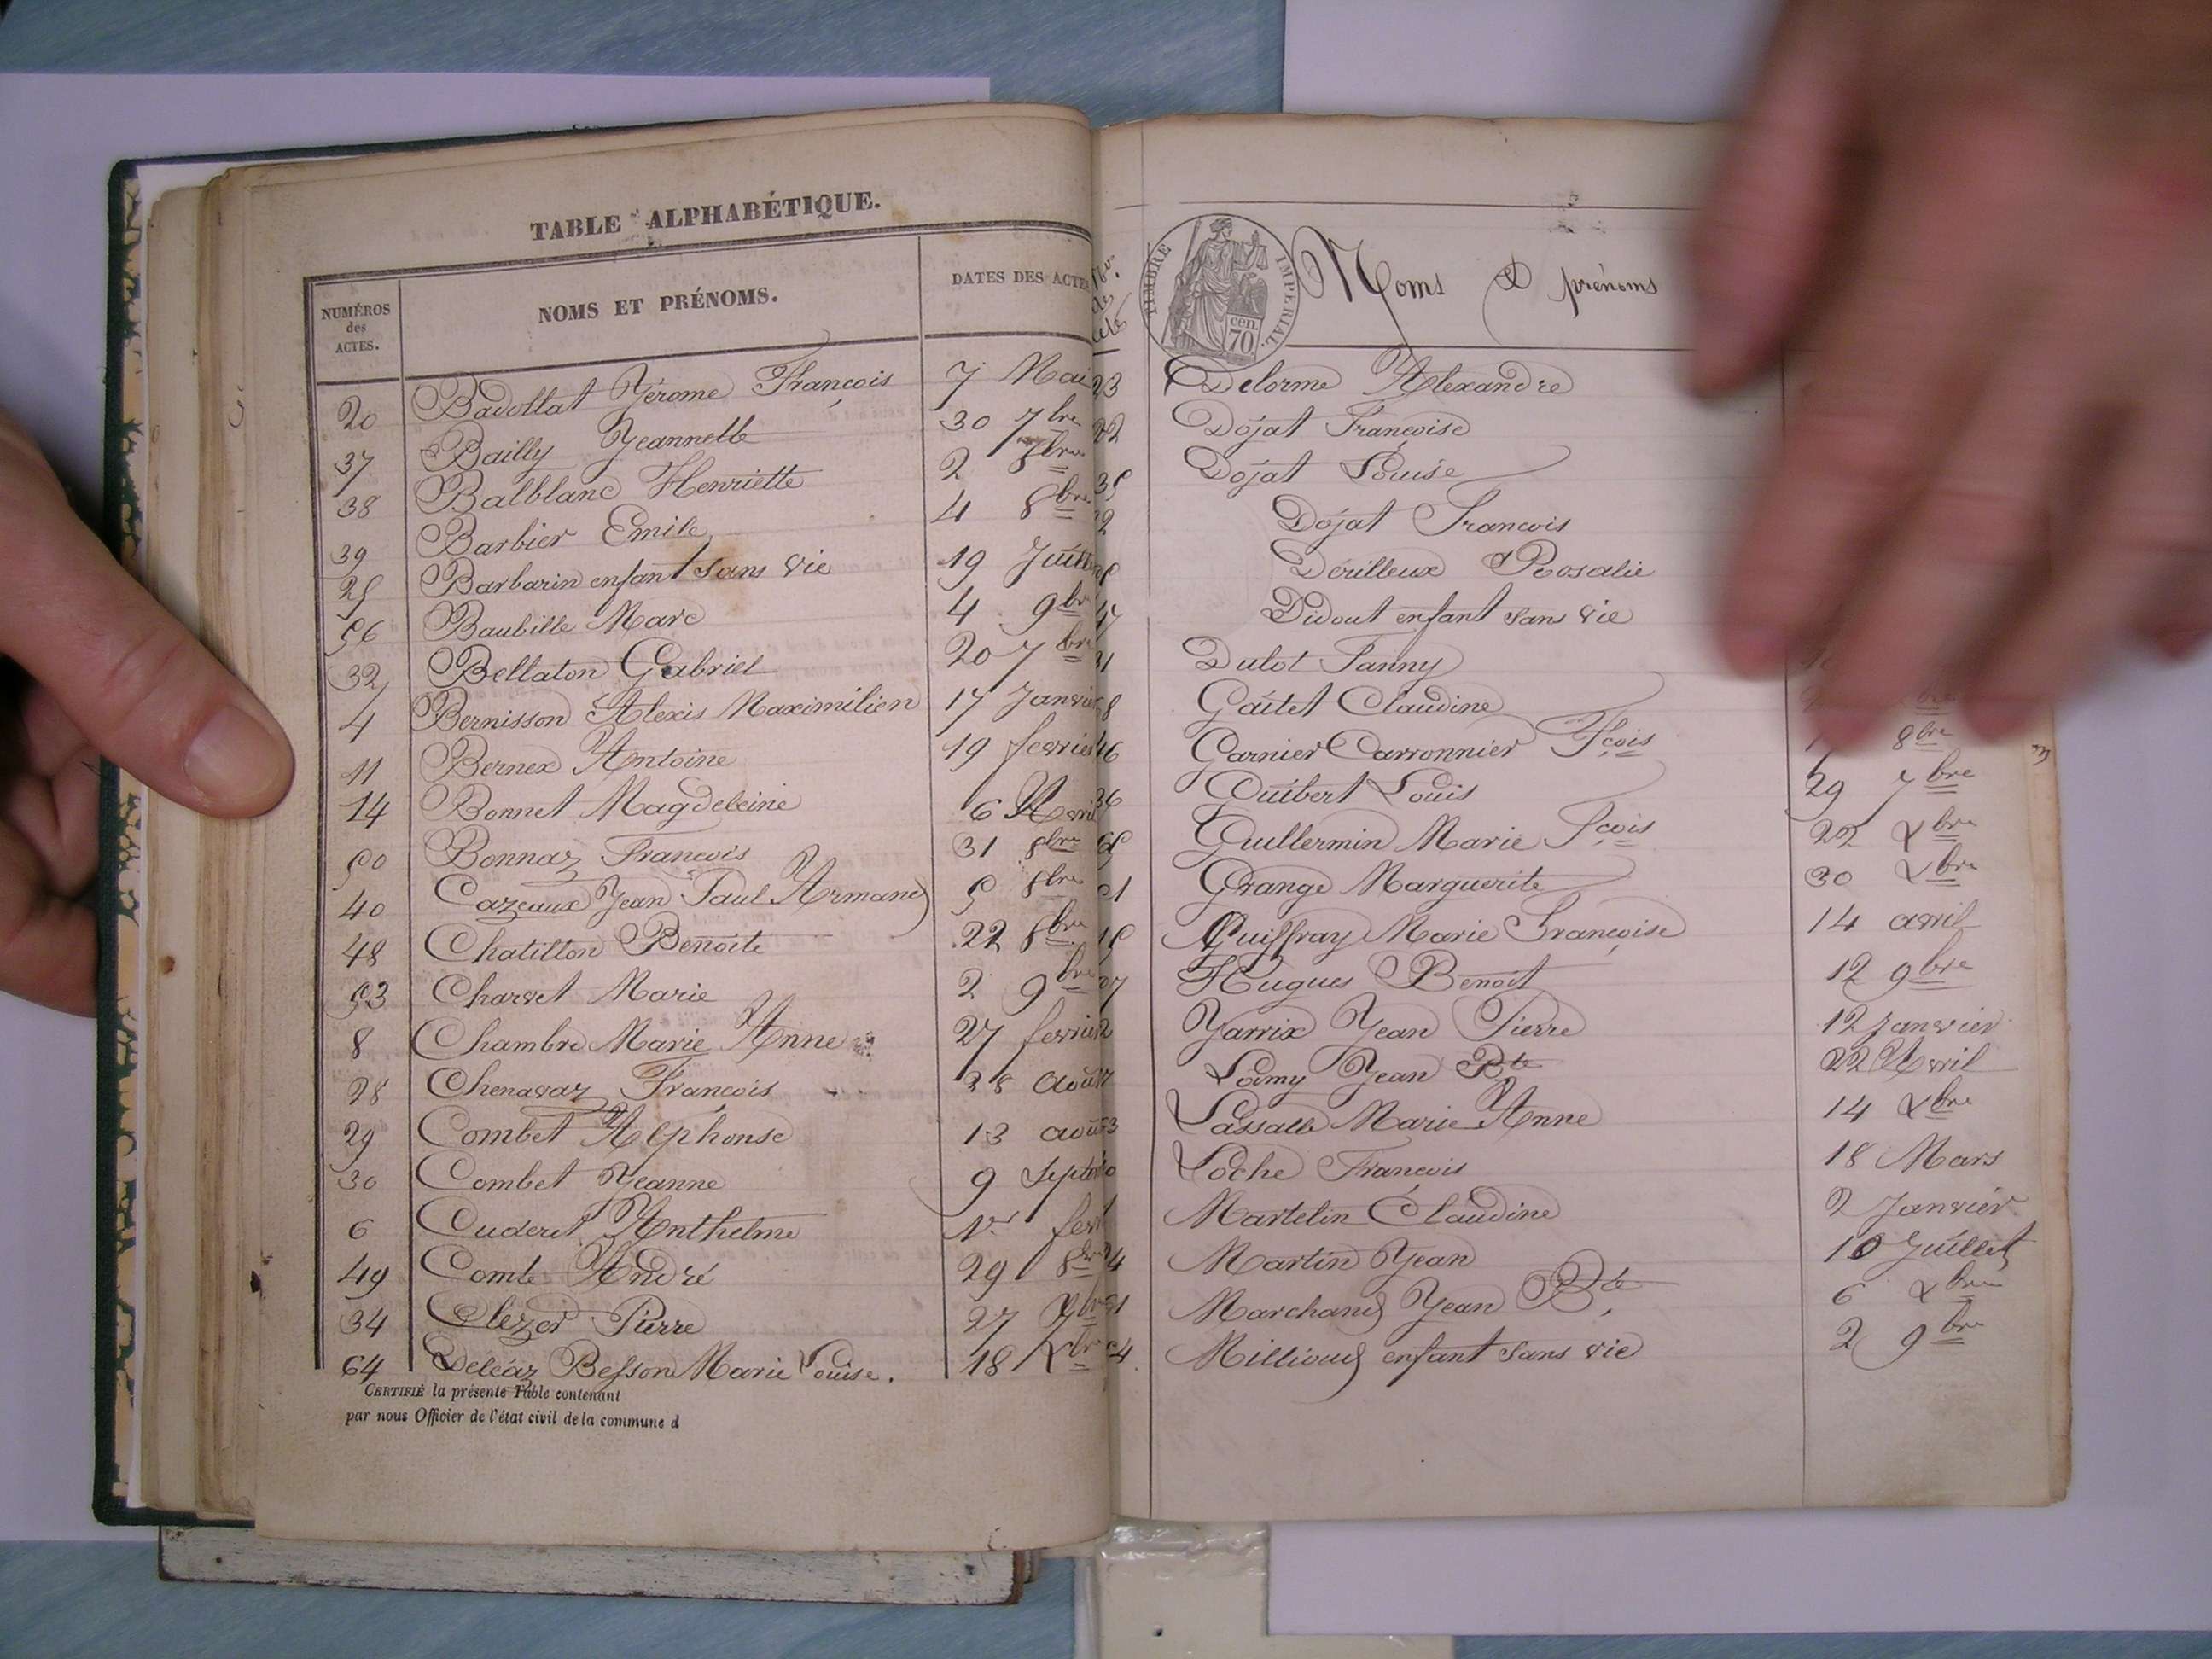 TABLE ALPHABÉTIQUE.
NUMÉROS des ACTES.
NOMS ET PRÉNOMS.
DATES DES ACTES
20 Badollat Jérome François 7 Mai
37 Bailly Jeannette 30 7bre
38 Balblanc Henriette 2 8bre
39 Barbier Emile 4 8bre
25 Barbarin enfant sans vie 19 Juill
56 Baubille Marc 4 9bre
32 Bellaton Gabriel 20 7bre
4 Bernisson Alexis Maximilien 17 Janvier
11 Bernex Antoine 19 fevrier
14 Bonnet Magdeleine 6 Avril
50 Bonnaz François 31 8bre
40 Cazeaux Jean Paul Armand 5 8bre
48 Chatillon Benoite 22 8bre
53 Charvet Marie 2 9bre
8 Chambre Marie Anne 27 fevrier
28 Chenavaz François 28 Août
29 Combet Alphonse 13 août
30 Combet Jeanne 9 Septe
6 Cuderet Anthelme 1er fev
49 Comte André 29 8bre
34 Clezet Pierre 27 7bre
64 Deléaz Besson Marie Louise. 18 Xbre
CERTIFIÉ la présente Table contenant
par nous Officier de l'état civil de la commune d
TIMBRE IMPERIAL.
70 cen.
Noms & prénoms
23 Delorme Alexandre
22 Dojat Françoise
35 Dojat Louise
Dojat François
Dérilleux Rosalie
Didout enfant sans vie
Dulot Fanny
Gaîtet Claudine
46 Garnier Carronnier Fçois 8bre
36 Guibert Louis 29 7bre
Guillermin Marie Fçois 22 Xbre
Grange Marguerite 30 Xbre
Guiffray Marie Françoise 14 avril
Hugues Benoit 12 9bre
Jarrix Jean Pierre 12 Janvier
Loimy Jean Bte 22 Avril
Lassalle Marie Anne 14 Xbre
Loche François 18 Mars
Martelin Claudine 2 Janvier
Martin Jean 10 Juillet
Marchand Jean Bte 6 Xbre
54 Millioud enfant sans vie 2 9bre